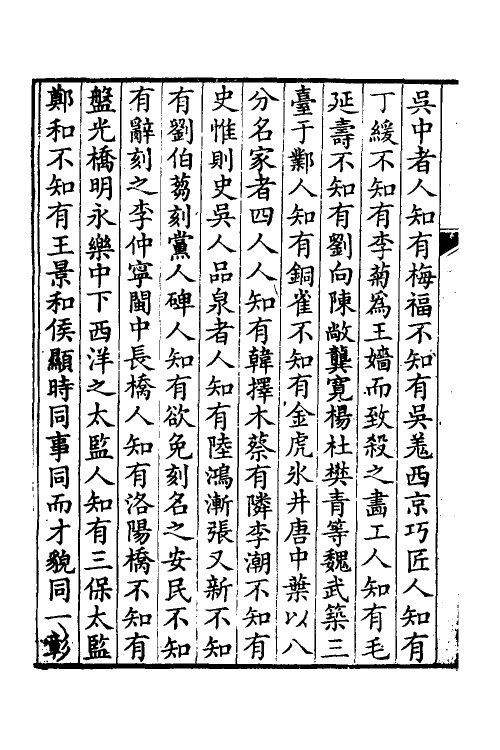 吳中者人知有梅福不知有吳羗西京巧匠人知有
丁緩不知有李菊爲王嬙而致殺之畵工人知有毛
延壽不知有劉向陳敞龔寛楊杜樊青等魏武築三
臺于鄴人知有銅雀不知有金虎氷井唐中葉以八
分名家者四人人知有韓擇木蔡有隣李潮不知有
史惟則史吳人品泉者人知有陸鴻漸張又新不知
有劉伯蒭刻黨人碑人知有欲免刻名之安民不知
有辭刻之李仲寧閩中長橋人知有洛陽橋不知有
盤光橋明永樂中下西洋之太監人知有三保太監
鄭和不知有王景和侯顯時同事同而才貌同一彰